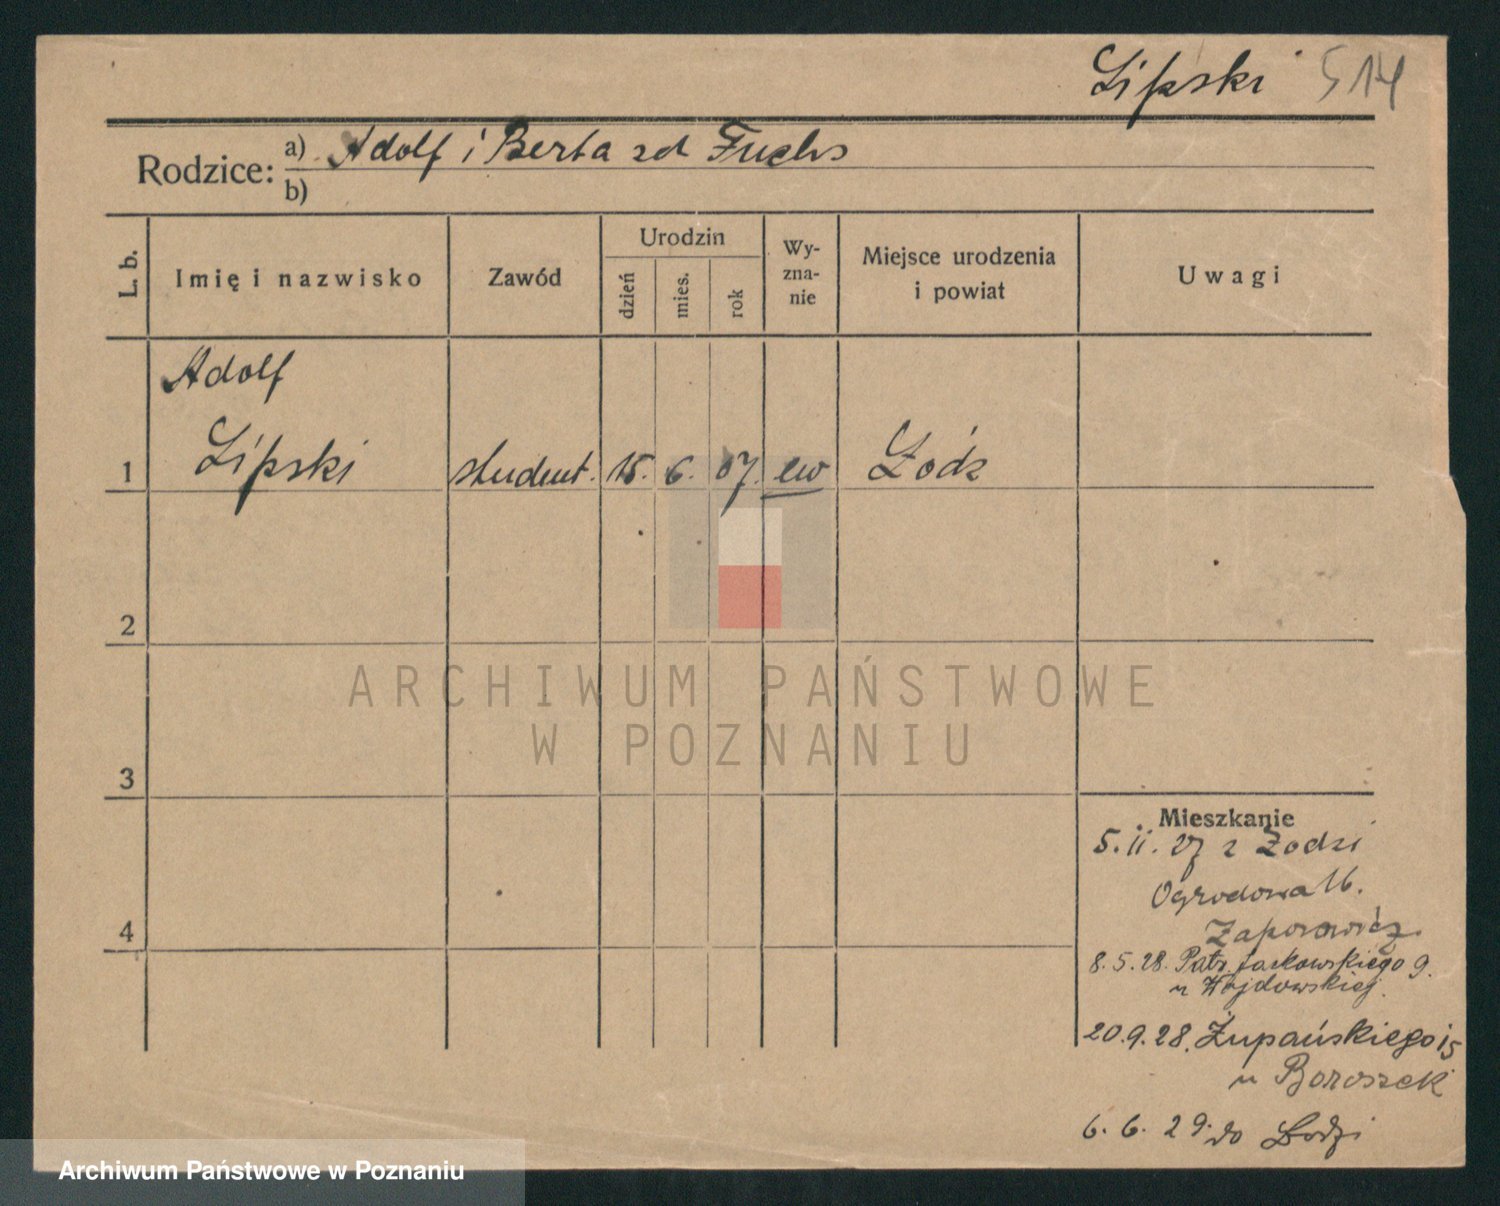 Lipski 514
Rodzice: a) Adolf i Berta zd Fuchs
b)
L. b.
Imię i nazwisko
Zawód
Urodzin
dzień
mies.
rok
Wy-
zna-
nie
Miejsce urodzenia
i powiat
Uwagi
Adolf
1 Lipski student. 15. 6. 07. ew Łódź
2
3
4
ARCHIWUM PAŃSTWOWE
W POZNANIU
Mieszkanie
5.11.27 z Łodzi
Ogrodowa 16.
8.5.28. Patr. Jackowskiego 9.
u Wojdowskiej.
20.9.28. Żupańskiego 15
u Boroszek
6.6.29. do Łodzi
Archiwum Państwowe w Poznaniu